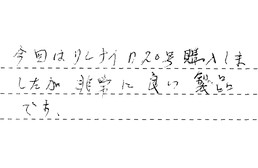 今回はリンナイの20号購入しま
したが非常に良い製品
です。